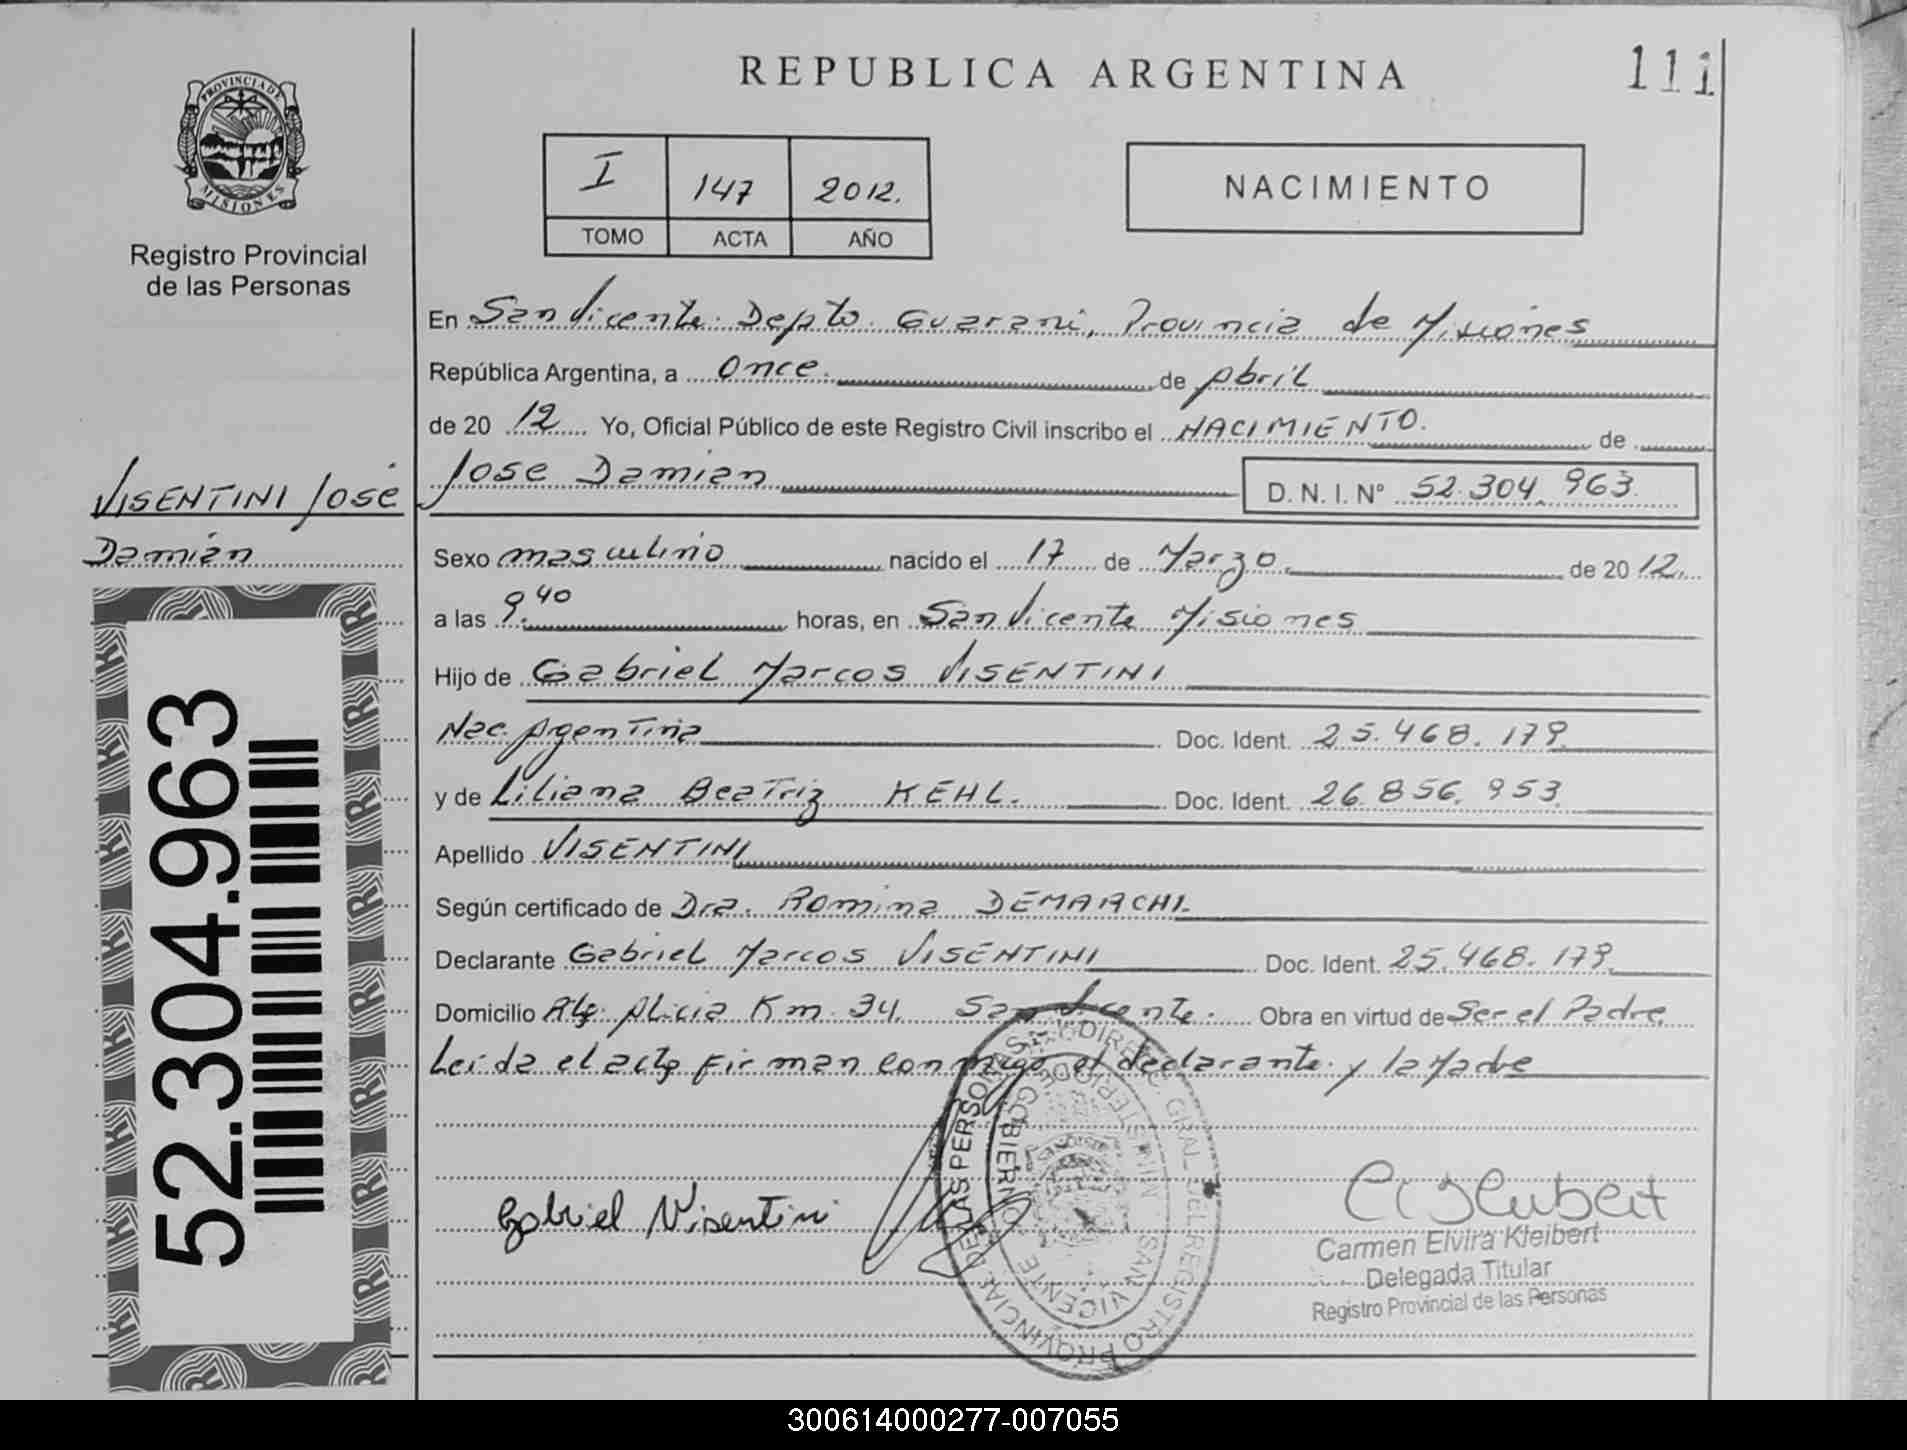 REPUBLICA ARGENTINA
111
PROVINCIA DE
MISIONES
Registro Provincial
de las Personas
I 147 2012.
TOMO ACTA AÑO
NACIMIENTO
En San Vicente Depto Guarani, Provincia de Misiones
República Argentina, a once. de Abril
de 20 12 Yo, Oficial Público de este Registro Civil inscribo el NACIMIENTO. de
Jose Damian D. N. I. Nº 52.304.963
VISENTINI Jose
Damián
Sexo masculino nacido el 17 de Marzo. de 20 12.
a las 9.40 horas, en San Vicente Misiones
Hijo de Gabriel Marcos VISENTINI
Nac. Argentina Doc. Ident. 25.468.179
y de Liliana Beatriz KEHL. Doc. Ident. 26.856.953
Apellido VISENTINI
Según certificado de Dra. Romina DEMARCHI.
Declarante Gabriel Marcos VISENTINI Doc. Ident. 25.468.179
Domicilio Alicia Km 34. San Vicente. Obra en virtud de Ser el Padre
Leida el acta firman conmigo el declarante y la Madre
Gabriel Visentini
Carmen Elvira Kleibert
Delegada Titular
Registro Provincial de las Personas
DIREC. GRAL. DEL REGISTRO PROVINCIAL DE LAS PERSONAS
MINISTERIO DE GOBIERNO
SAN VICENTE
52.304.963
300614000277-007055